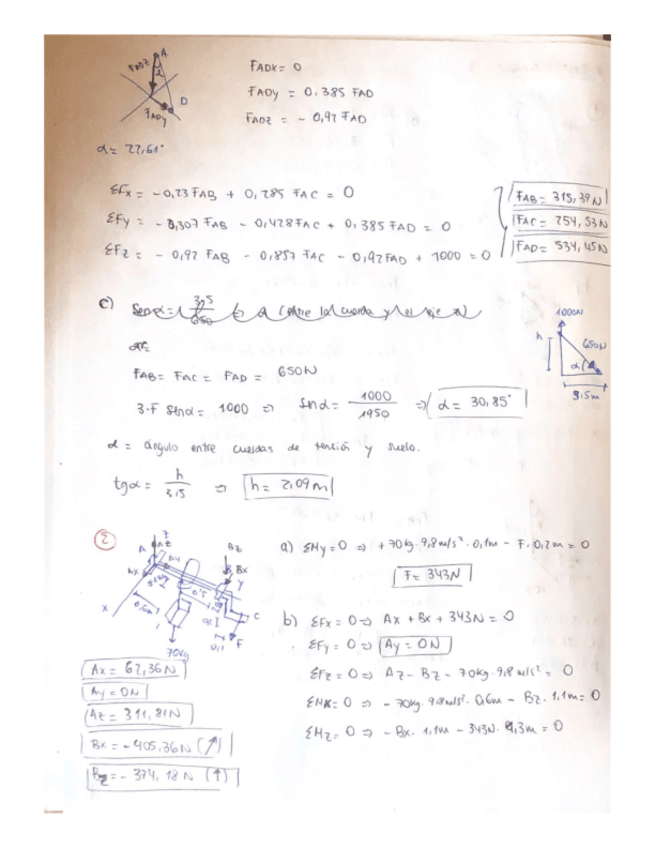 A
FADZ
α
D
FADy
FADX = 0
FADy = 0.385 FAD
FADZ = - 0,92 FAD
α = 22,61°
ΣFx = - 0,23 FAB + 0,285 FAC = 0
ΣFy = - 0,307 FAB - 0,428 FAC + 0,385 FAD = 0
ΣFz = - 0,92 FAB - 0,857 FAC - 0,92 FAD + 1000 = 0
FAB = 315,39 N
FAC = 254,53 N
FAD = 534,45 N
c)
1000N
h
650N
α
3.5m
FAB = FAC = FAD = 650N
3·F senα = 1000 ⇒ senα = 1000/1950 ⇒ α = 30,85°
α = ángulo entre cuerdas de tensión y suelo.
tgα = h/3,5 ⇒ h = 2,09 m
2
Z
A
AZ
AX
BZ
BX
Y
X
C
F
70kg
a) ΣMy = 0 ⇒ +70kg·9,8 m/s²·0,1m - F·0,2m = 0
F = 343N
b) ΣFx = 0 ⇒ Ax + Bx + 343N = 0
ΣFy = 0 ⇒ Ay = 0N
ΣFz = 0 ⇒ Az - Bz - 70kg·9,8 m/s² = 0
ΣMx = 0 ⇒ - 70kg·9,8m/s²·0,6m - Bz·1,1m = 0
ΣMz = 0 ⇒ - Bx·1,1m - 343N·1,3m = 0
Ax = 62,36N
Ay = 0N
Az = 311,81N
Bx = - 405,36N (↗)
Bz = - 374,18 N (↑)